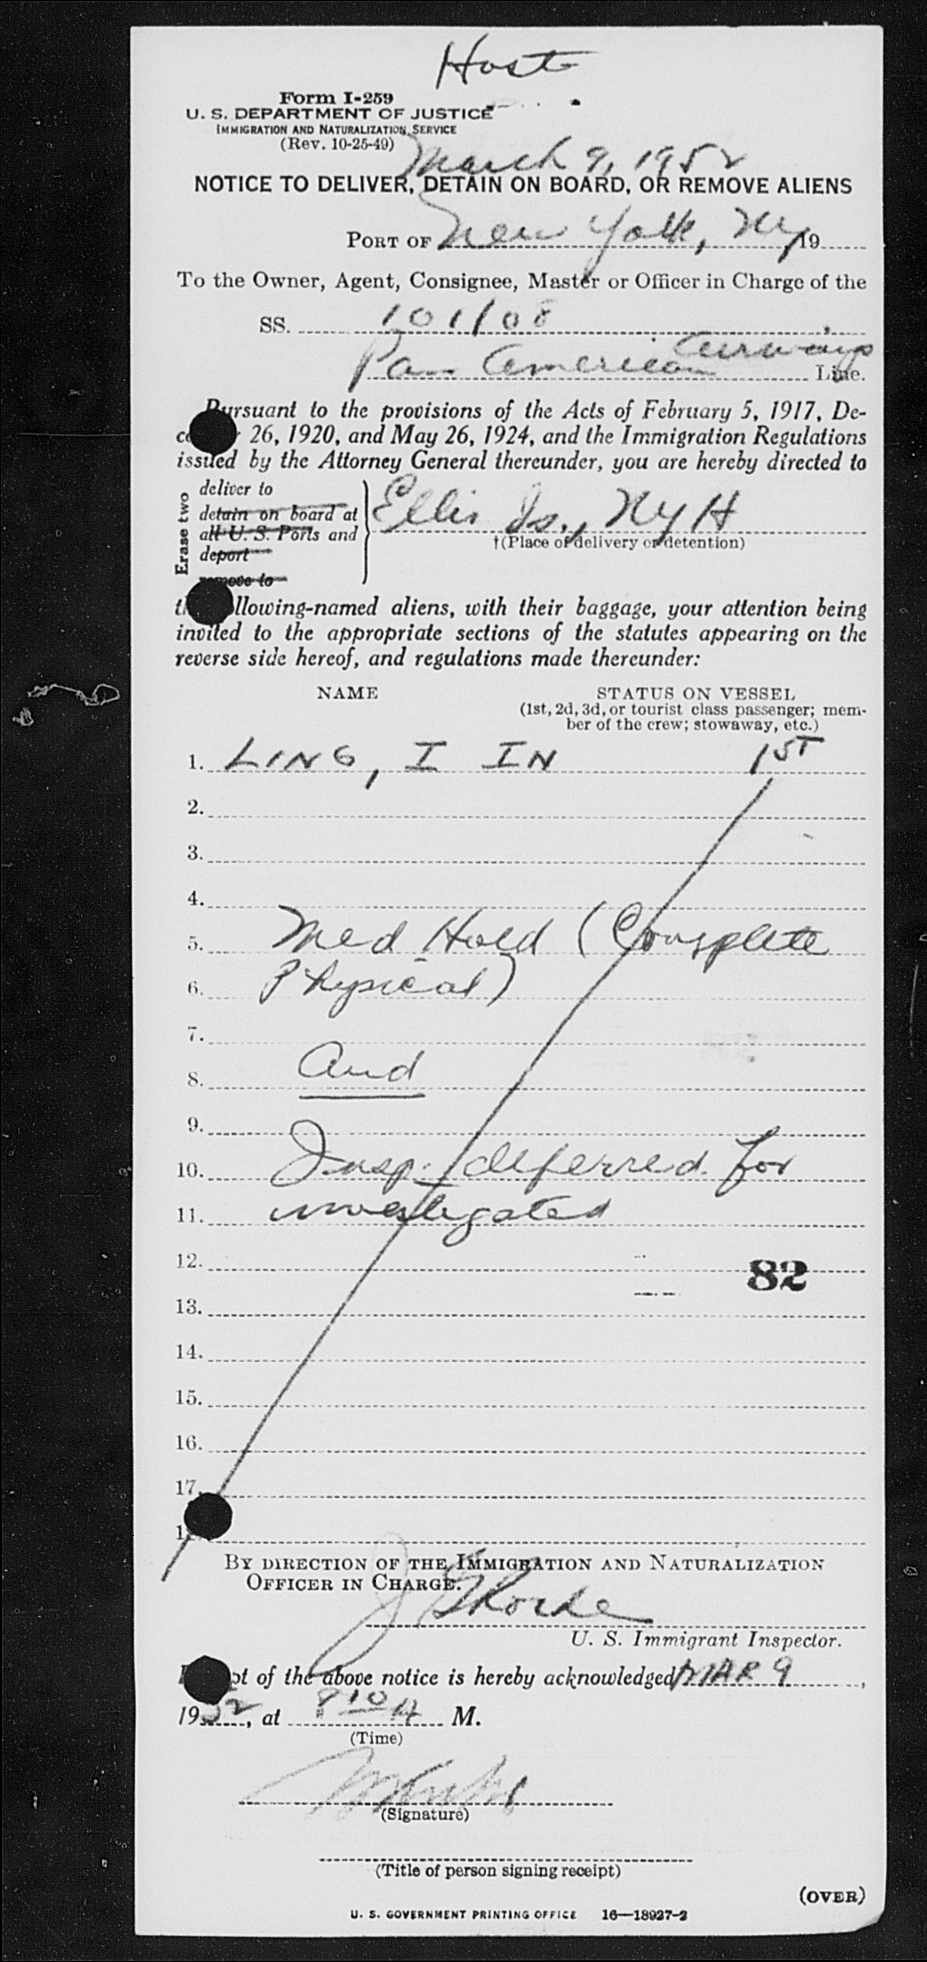 Host
Form I-259
U. S. DEPARTMENT OF JUSTICE
IMMIGRATION AND NATURALIZATION SERVICE
(Rev. 10-25-49)
March 9, 1952
NOTICE TO DELIVER, DETAIN ON BOARD, OR REMOVE ALIENS
PORT OF New York, Ny 19
To the Owner, Agent, Consignee, Master or Officer in Charge of the
SS. 101/08
Pan American Airways Line.
Pursuant to the provisions of the Acts of February 5, 1917, De-
26, 1920, and May 26, 1924, and the Immigration Regulations
issued by the Attorney General thereunder, you are hereby directed to
Erase two
deliver to
detain on board at
all U. S. Ports and
deport
remove to
Ellis Is., NYH
†(Place of delivery or detention)
following-named aliens, with their baggage, your attention being
invited to the appropriate sections of the statutes appearing on the
reverse side hereof, and regulations made thereunder:
NAME STATUS ON VESSEL
(1st, 2d, 3d, or tourist class passenger; mem-
ber of the crew; stowaway, etc.)
1. LING, I IN 1ST
2.
3.
4.
5. Med Hold (Complete
6. Physical)
7.
8. And
9.
10. Insp. deferred for
11. investigated
12. 82
13.
14.
15.
16.
17.
BY DIRECTION OF THE IMMIGRATION AND NATURALIZATION
OFFICER IN CHARGE.
U. S. Immigrant Inspector.
of the above notice is hereby acknowledged MAR 9,
1952, at 810 A M.
(Time)
(Signature)
(Title of person signing receipt)
(OVER)
U. S. GOVERNMENT PRINTING OFFICE 16—18927-2